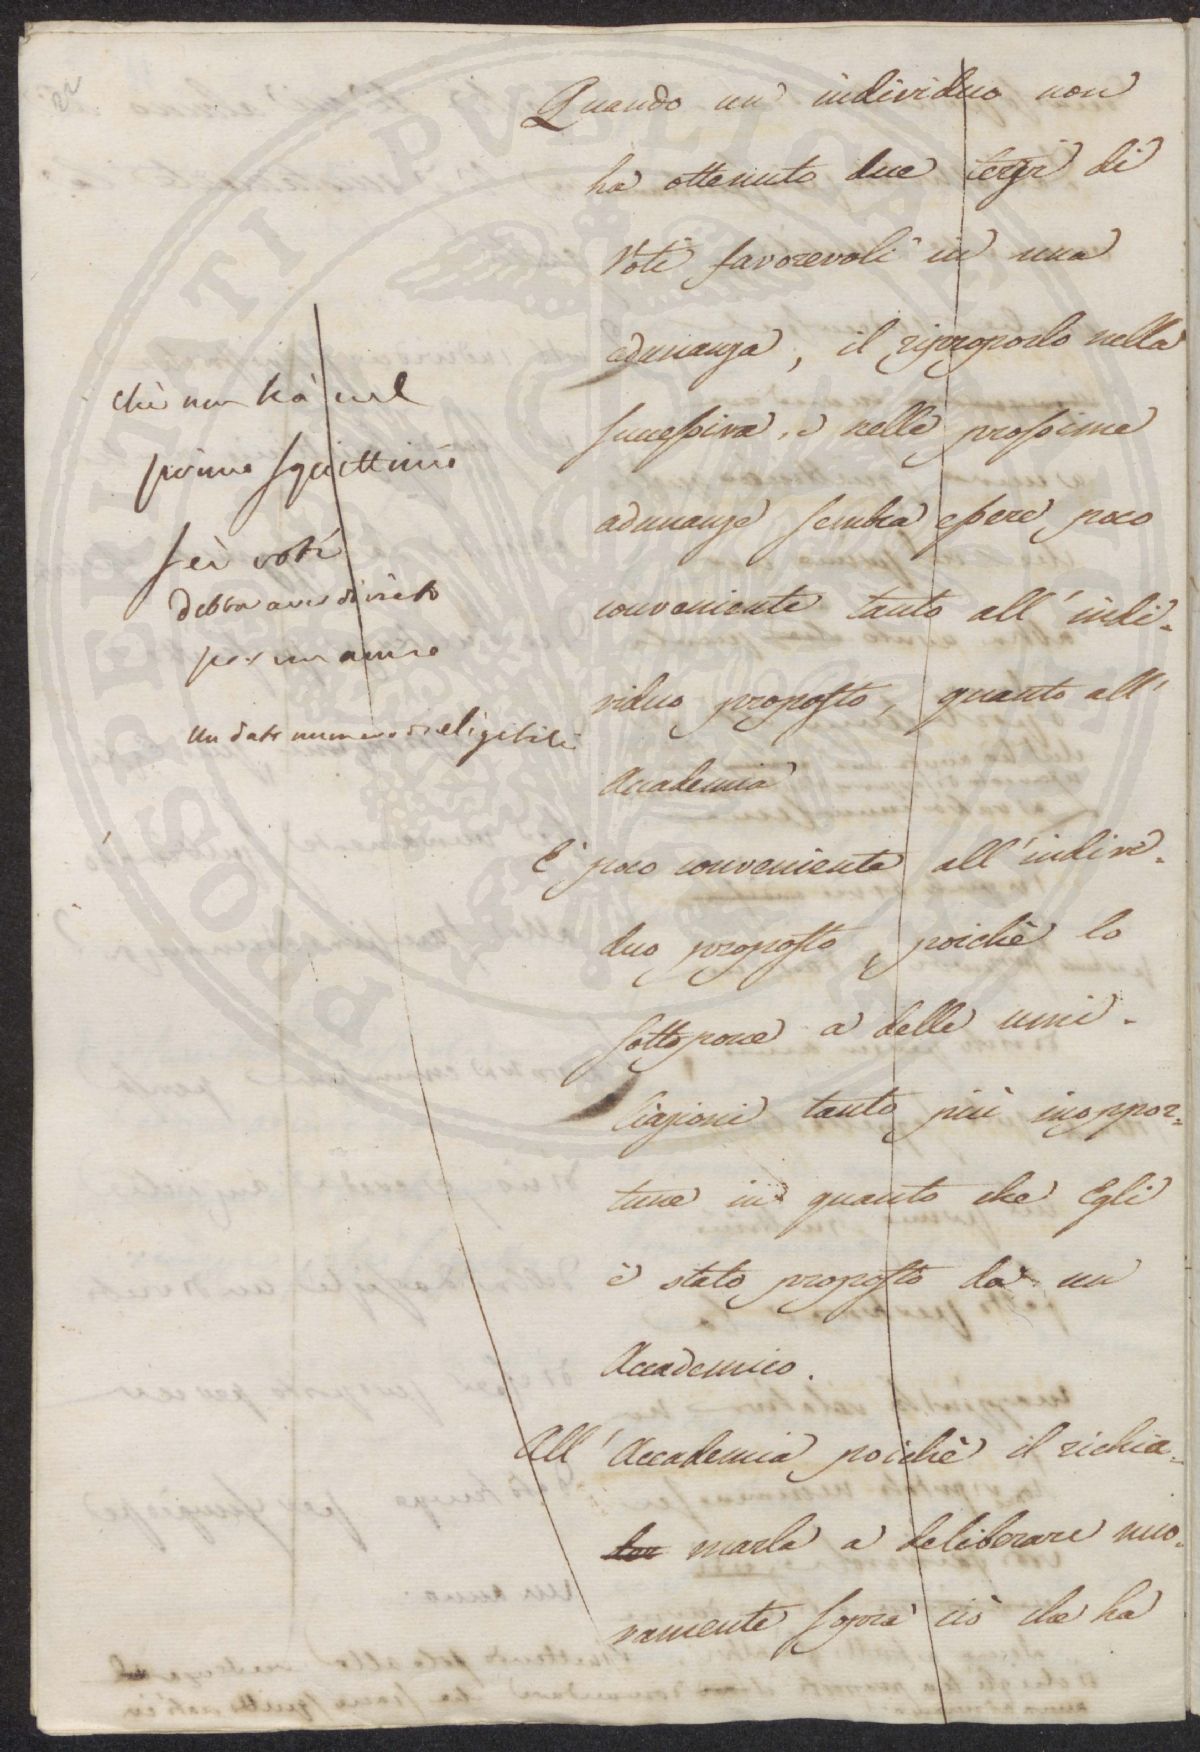 22
Quando un individuo non
ha ottenuto due terzi di
Voti favorevoli in una
adunanza, il riproporlo nella
successiva, e nelle prossime
adunanze sembra essere poco
conveniente tanto all' indi-
viduo proposto, quanto all'
Accademia
E' poco conveniente all' indivi-
duo proposto, poichè lo
sottopone a delle umi-
liazioni tanto più inoppor-
tune in quanto che Egli
è stato proposto da un
Accademico.
All' Accademia poichè il richia-
marla a deliberare nuo-
vamente sopra ciò che ha
chi non hà nel
primo squittinio
sei voti
debba aver divieto
per un anno
Un dato numero di eligibili
PROSPERITATI PUBLICAE